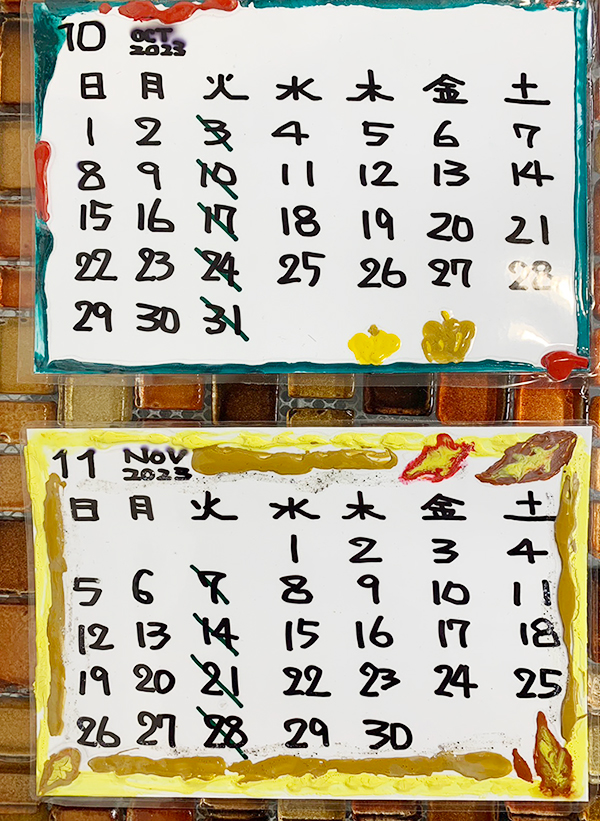 10 OCT. 2023
日 月 火 水 木 金 土
1 2 3 4 5 6 7
8 9 10 11 12 13 14
15 16 17 18 19 20 21
22 23 24 25 26 27 28
29 30 31
11 NOV 2023
日 月 火 水 木 金 土
1 2 3 4
5 6 7 8 9 10 11
12 13 14 15 16 17 18
19 20 21 22 23 24 25
26 27 28 29 30